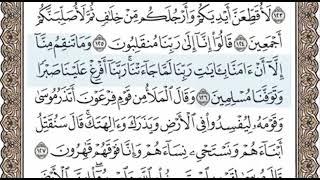 ١٢٣ لَأُقَطِّعَنَّ أَيْدِيَكُمْ وَأَرْجُلَكُم مِّنْ خِلَٰفٍ ثُمَّ لَأُصَلِّبَنَّكُمْ
أَجْمَعِينَ ١٢٤ قَالُوٓا۟ إِنَّآ إِلَىٰ رَبِّنَا مُنقَلِبُونَ ١٢٥ وَمَا تَنقِمُ مِنَّآ
إِلَّآ أَنْ ءَامَنَّا بِـَٔايَٰتِ رَبِّنَا لَمَّا جَآءَتْنَا رَبَّنَآ أَفْرِغْ عَلَيْنَا صَبْرًا
وَتَوَفَّنَا مُسْلِمِينَ ١٢٦ وَقَالَ ٱلْمَلَأُ مِن قَوْمِ فِرْعَوْنَ أَتَذَرُ مُوسَىٰ
وَقَوْمَهُۥ لِيُفْسِدُوا۟ فِى ٱلْأَرْضِ وَيَذَرَكَ وَءَالِهَتَكَ قَالَ سَنُقَتِّلُ
أَبْنَآءَهُمْ وَنَسْتَحْىِۦ نِسَآءَهُمْ وَإِنَّا فَوْقَهُمْ قَٰهِرُونَ ١٢٧